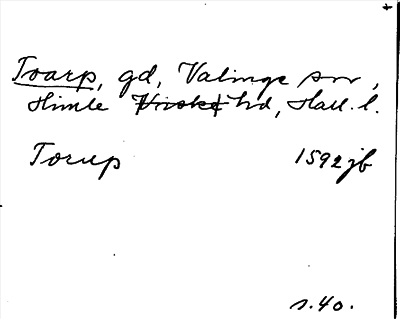 Toarp, gd, Valinge sn,
Himle hd, Hall. l.
Torup 1592 jb
s. 40.